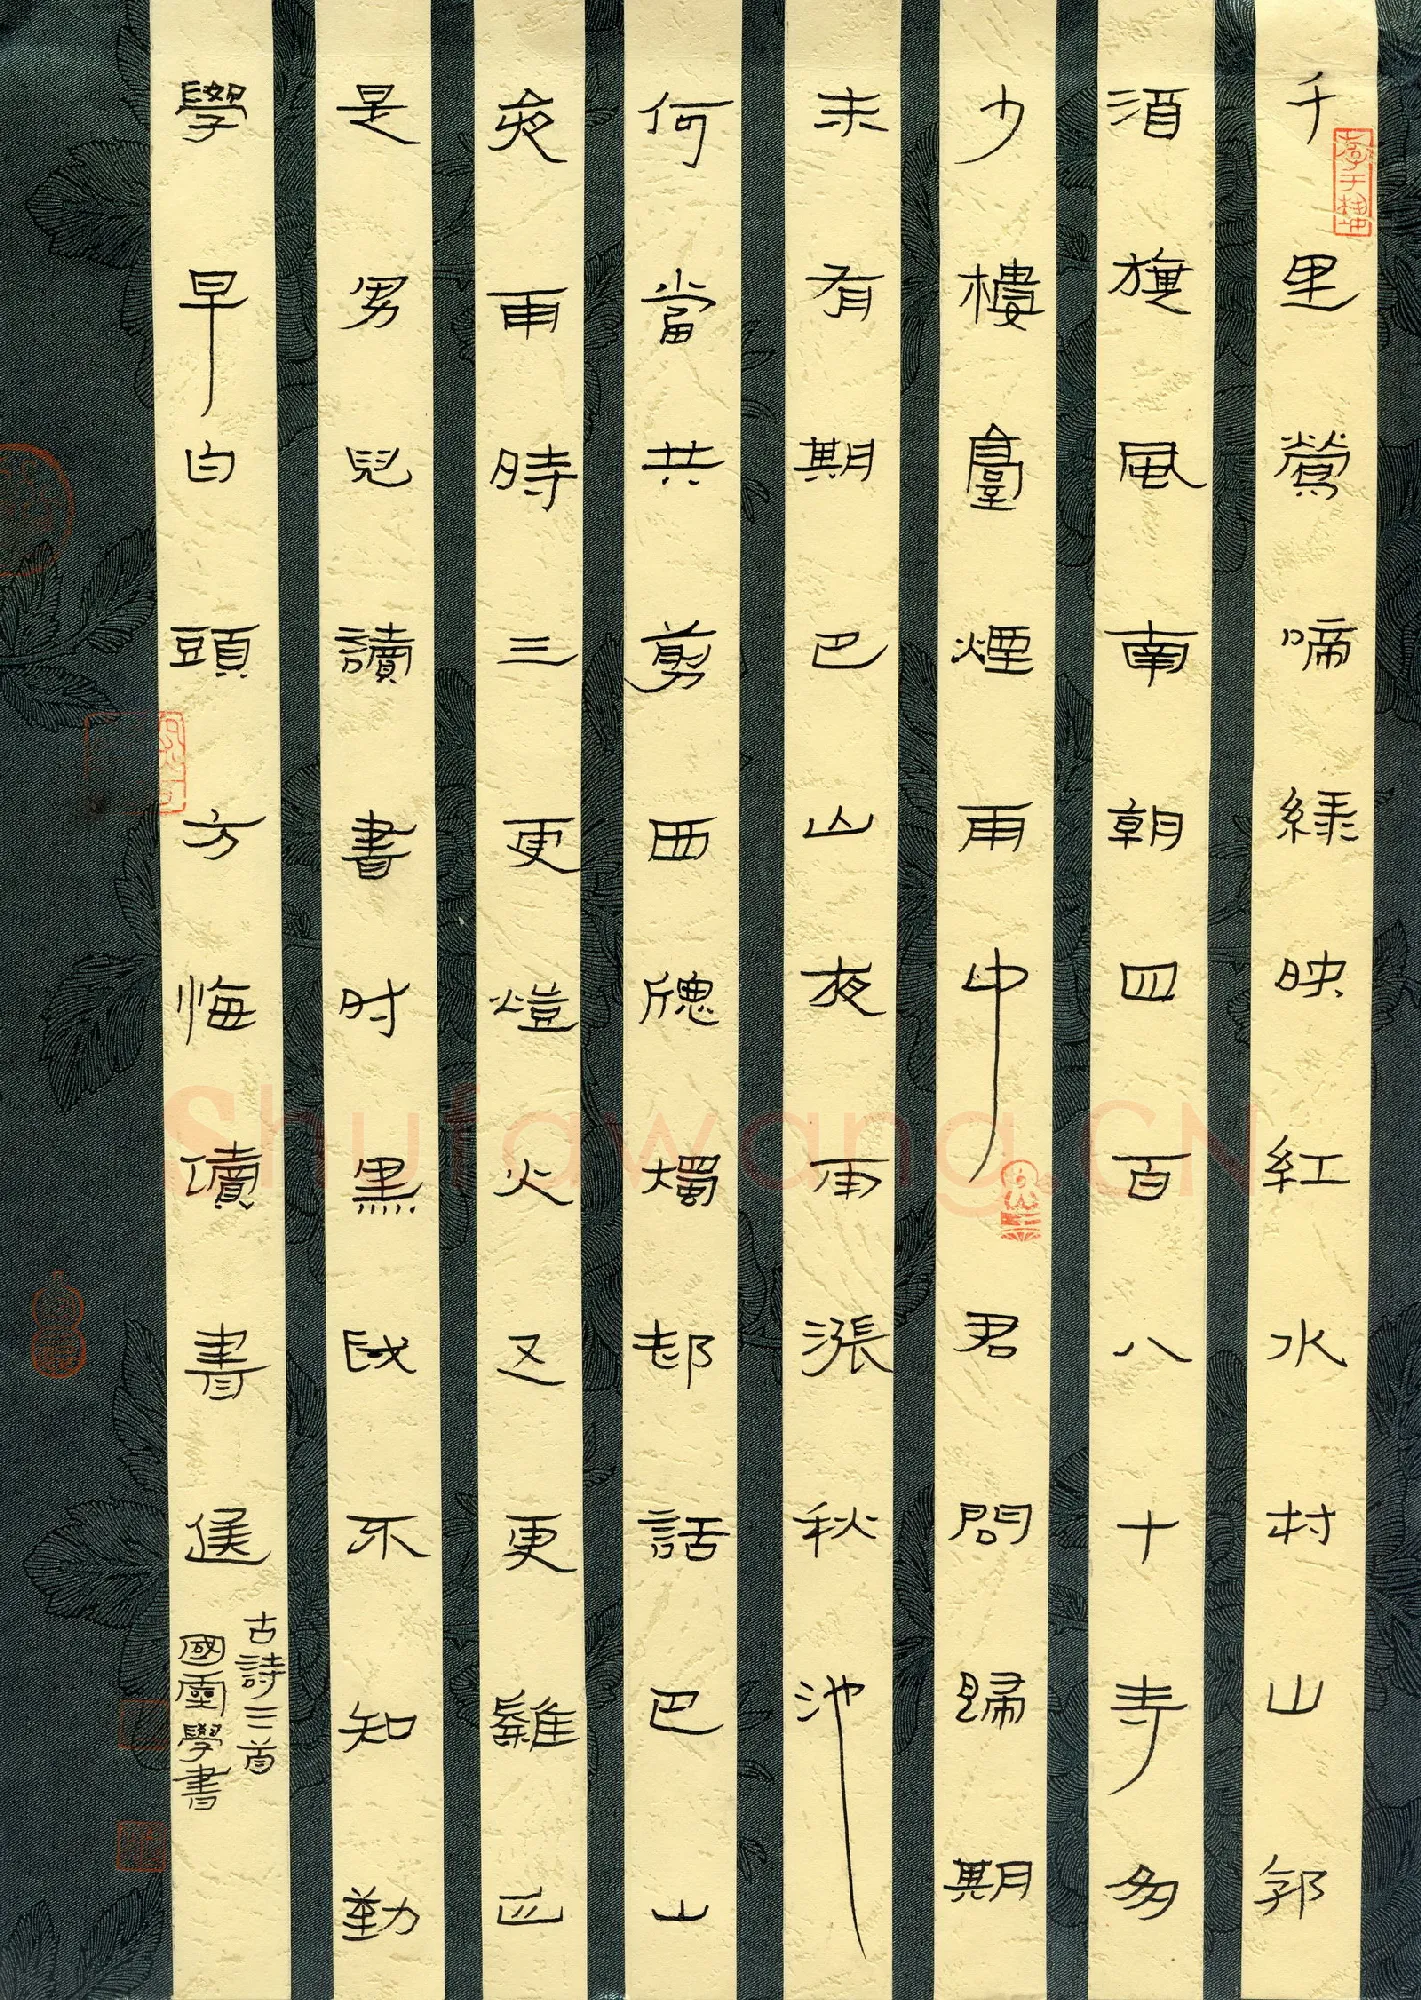 千里鶯啼綠映紅水村山郭
酒旗風南朝四百八十寺多
少樓臺煙雨中君問歸期
未有期巴山夜雨漲秋池
何當共剪西牕燭却話巴山
夜雨時三更燈火五更雞正
是男兒讀書时黑髮不知勤
學早白頭方悔讀書遲
古詩三首
國靈學書
Shufawang.CN